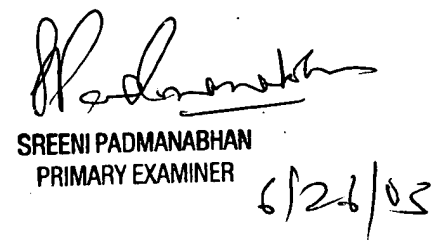 SPadmanabhan
SREENI PADMANABHAN
PRIMARY EXAMINER
6/26/03